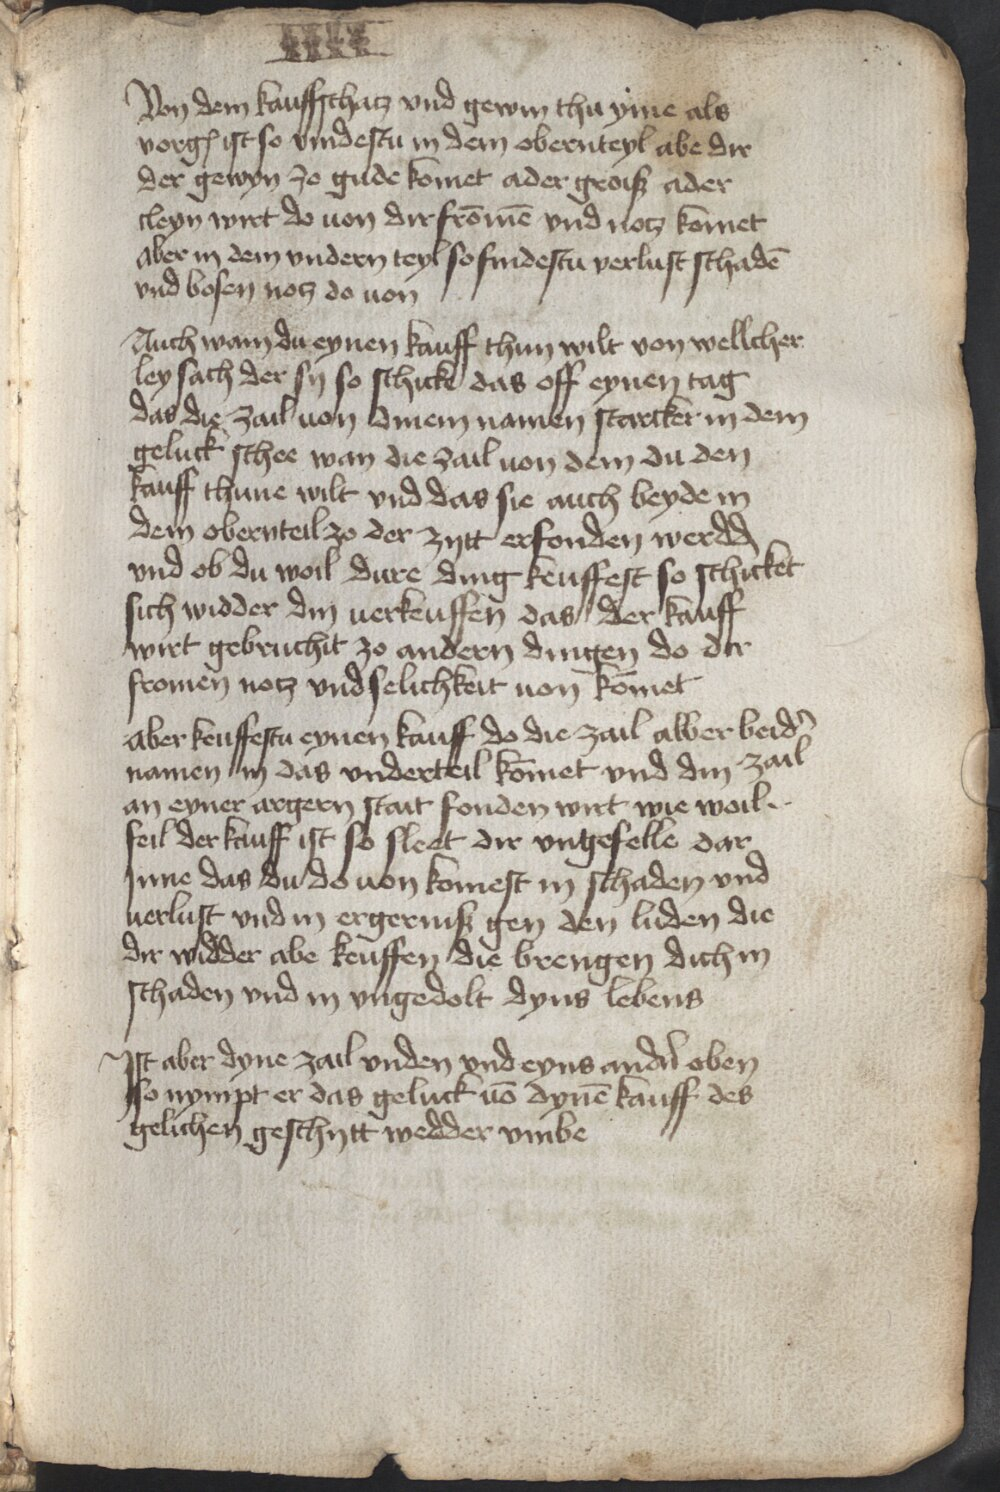 Von dem kauffschatz vnd gewin thu yme als
vorg ist so vindestu in dem obernteyl abe dir
der gewyn zo gude komet ader groisz ader
cleyn wirt do uon dir frōmē vnd notz komet
aber in dem vndern teyl so findestu verlust schadē
vnd bosen notz do uon
Auch wann du eynen kauff thun wilt von wellcher
ley sach der sy so schicke das off eynen tag
das die zail uon dinem namen starcker in dem
geluck schee wan die zail uon dem du den
kauff thune wilt vnd das sie auch beyde in
dem obernteil zo der zytt erfonden werdd
vnd ob du woil dure ding keuffest so schicket
sich widder din uerkeuffen das der kauff
wirt gebruchit zo andern dingen do dir
fromen notz vnd selichkeit uon komet
aber keuffestu eynen kauff do die zail abber beid
namen in das vnderteil komet vnd din zail
an eyner argern stait fonden wirt wie woil
feil der kauff ist so sleet dir vngefelle dar
Inne das du do uon komest in schaden vnd
uerlust vnd in ergernisz gen den luden die
dir widder abe keuffen die brengen dich in
schaden vnd in vngedolt dyns lebens
Ist aber dyne zail vnden vnd eyns and oben
so nympt er das geluck uō dynē kauff des
gelichen geschytt wedder vmbe